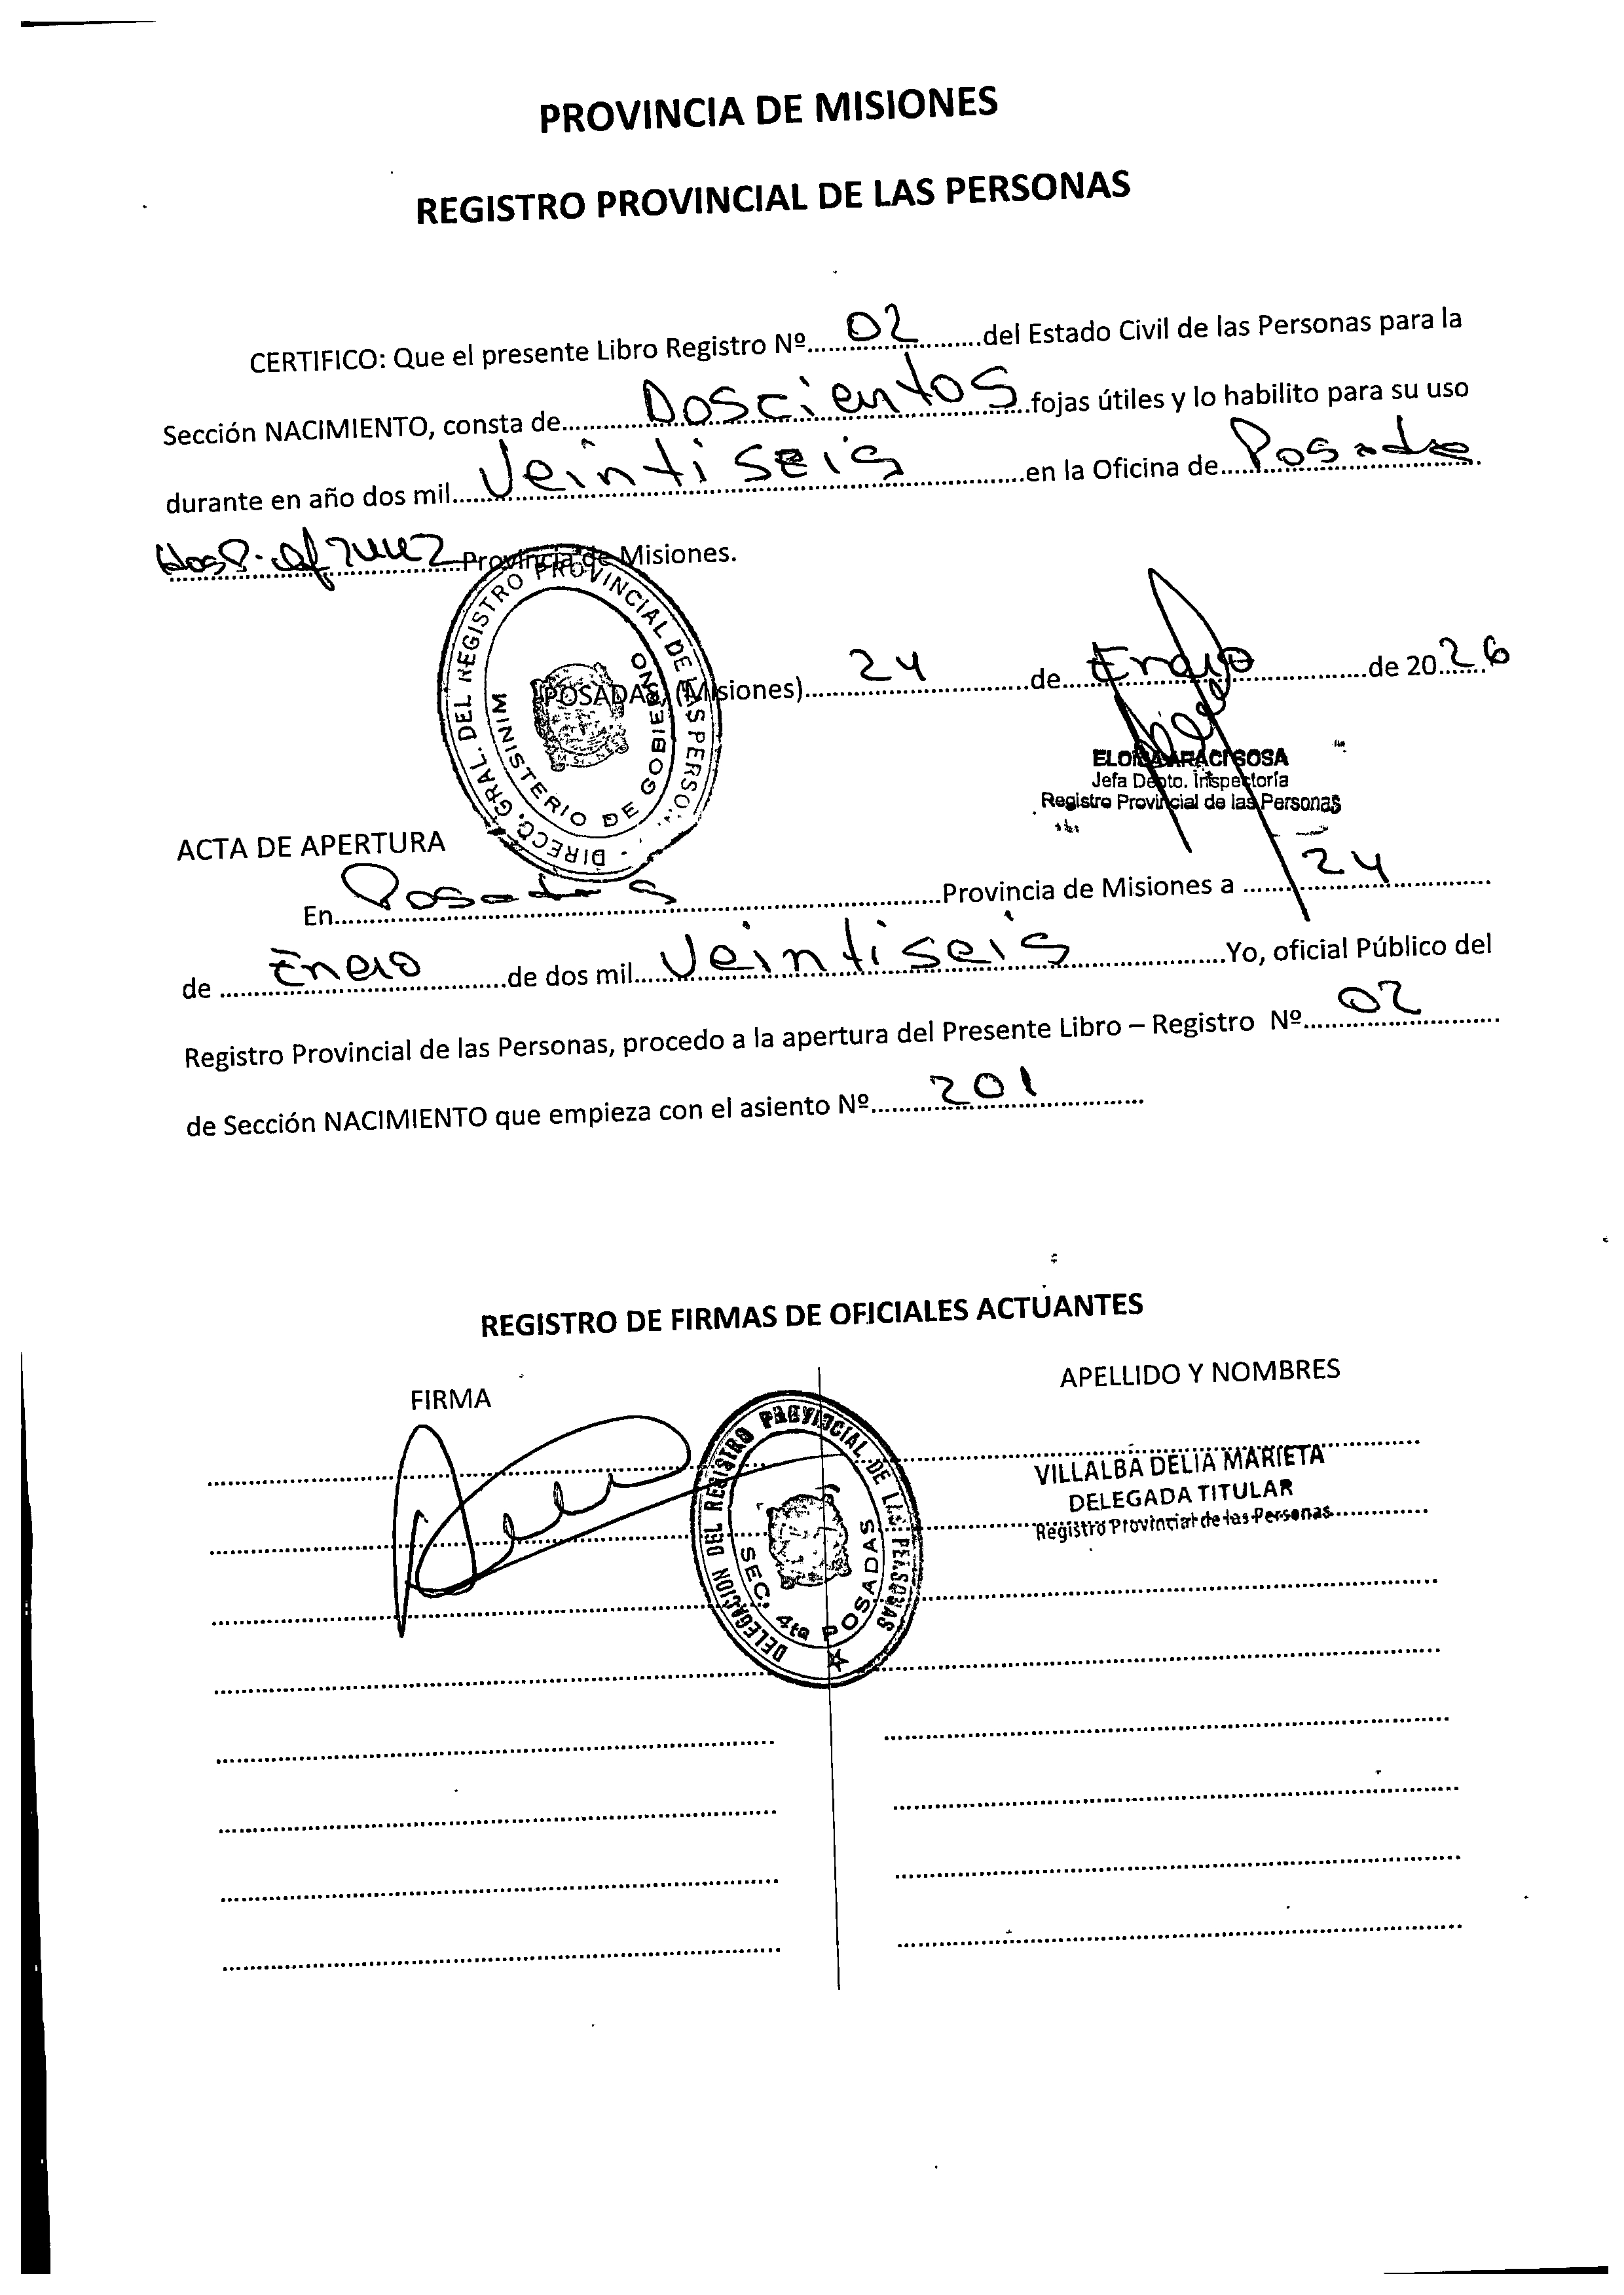 PROVINCIA DE MISIONES
REGISTRO PROVINCIAL DE LAS PERSONAS
CERTIFICO: Que el presente Libro Registro Nº 02 del Estado Civil de las Personas para la
Sección NACIMIENTO, consta de Doscientos fojas útiles y lo habilito para su uso
durante en año dos mil Veintiseis en la Oficina de Posadas
Hosp. Provincia de Misiones.
DIRECC. GRAL. DEL REGISTRO PROVINCIAL DE LAS PERSO.
MINISTERIO DE GOBIERNO
POSADAS, (Misiones) 24 de Enero de 2026
ELOISA ARACI SOSA
Jefa Depto. Inspectoría
Registro Provincial de las Personas
ACTA DE APERTURA
En Posadas Provincia de Misiones a 24
de Enero de dos mil Veintiseis Yo, oficial Público del
Registro Provincial de las Personas, procedo a la apertura del Presente Libro – Registro Nº 02
de Sección NACIMIENTO que empieza con el asiento Nº 201
REGISTRO DE FIRMAS DE OFICIALES ACTUANTES
FIRMA
APELLIDO Y NOMBRES
DELEGACION DEL REGISTRO PROVINCIAL DE LAS PERSONAS
SEC. 4ta POSADAS
VILLALBA DELIA MARIETA
DELEGADA TITULAR
Registro Provincial de las Personas